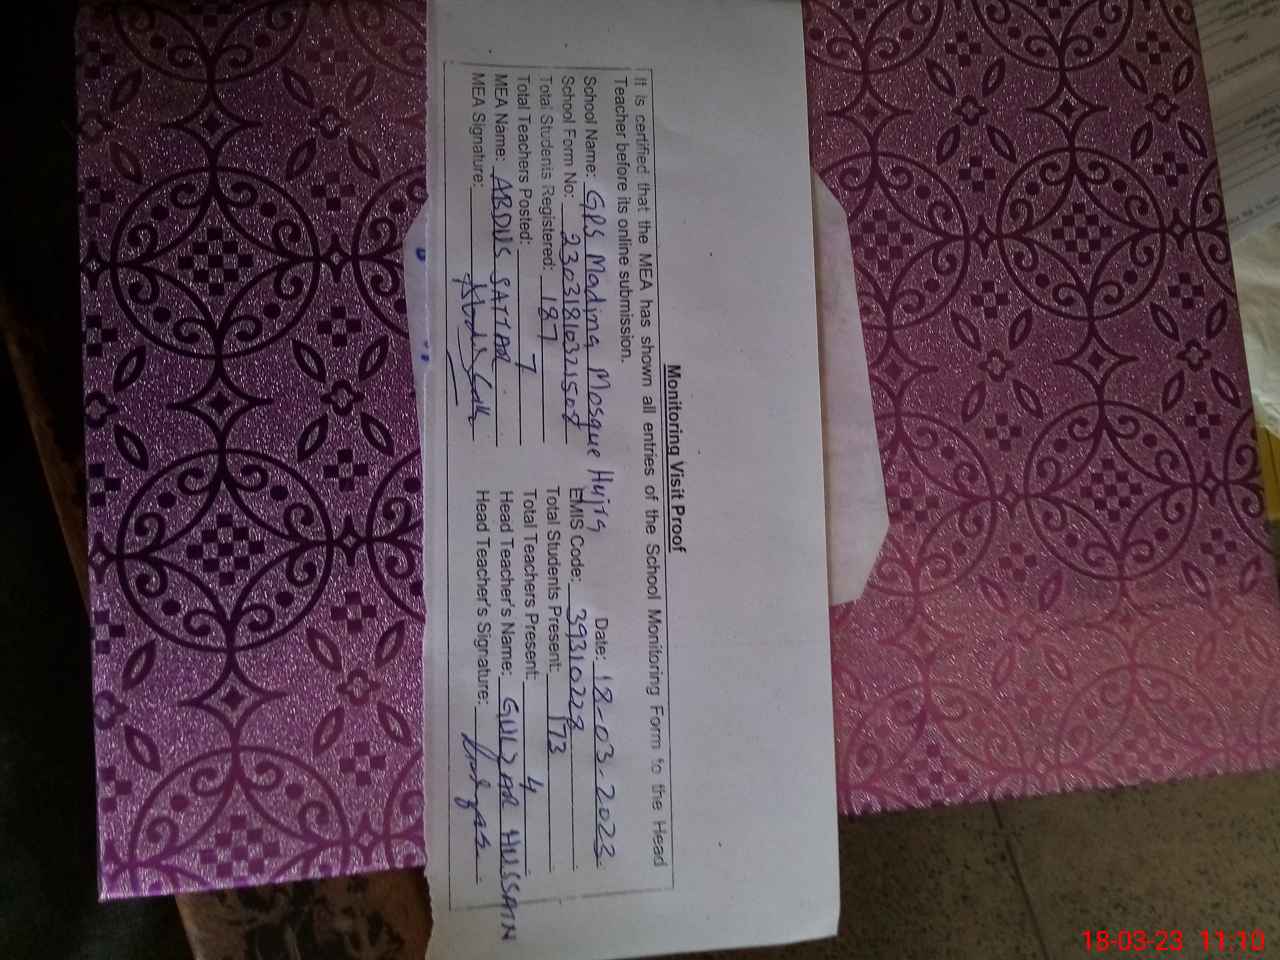 Monitoring Visit Proof
It is certified that the MEA has shown all entries of the School Monitoring Form to the Head
Teacher before its online submission.
School Name: GPS Madina Mosque Hujra Date: 18-03-2023
School Form No: 230318103121508 EMIS Code: 39310228
Total Students Registered: 187 Total Students Present: 173
Total Teachers Posted: 7 Total Teachers Present: 4
MEA Name: ABDUS SATTAR Head Teacher's Name: GULZAR HUSSAIN
MEA Signature: Head Teacher's Signature:
18-03-23 11:10